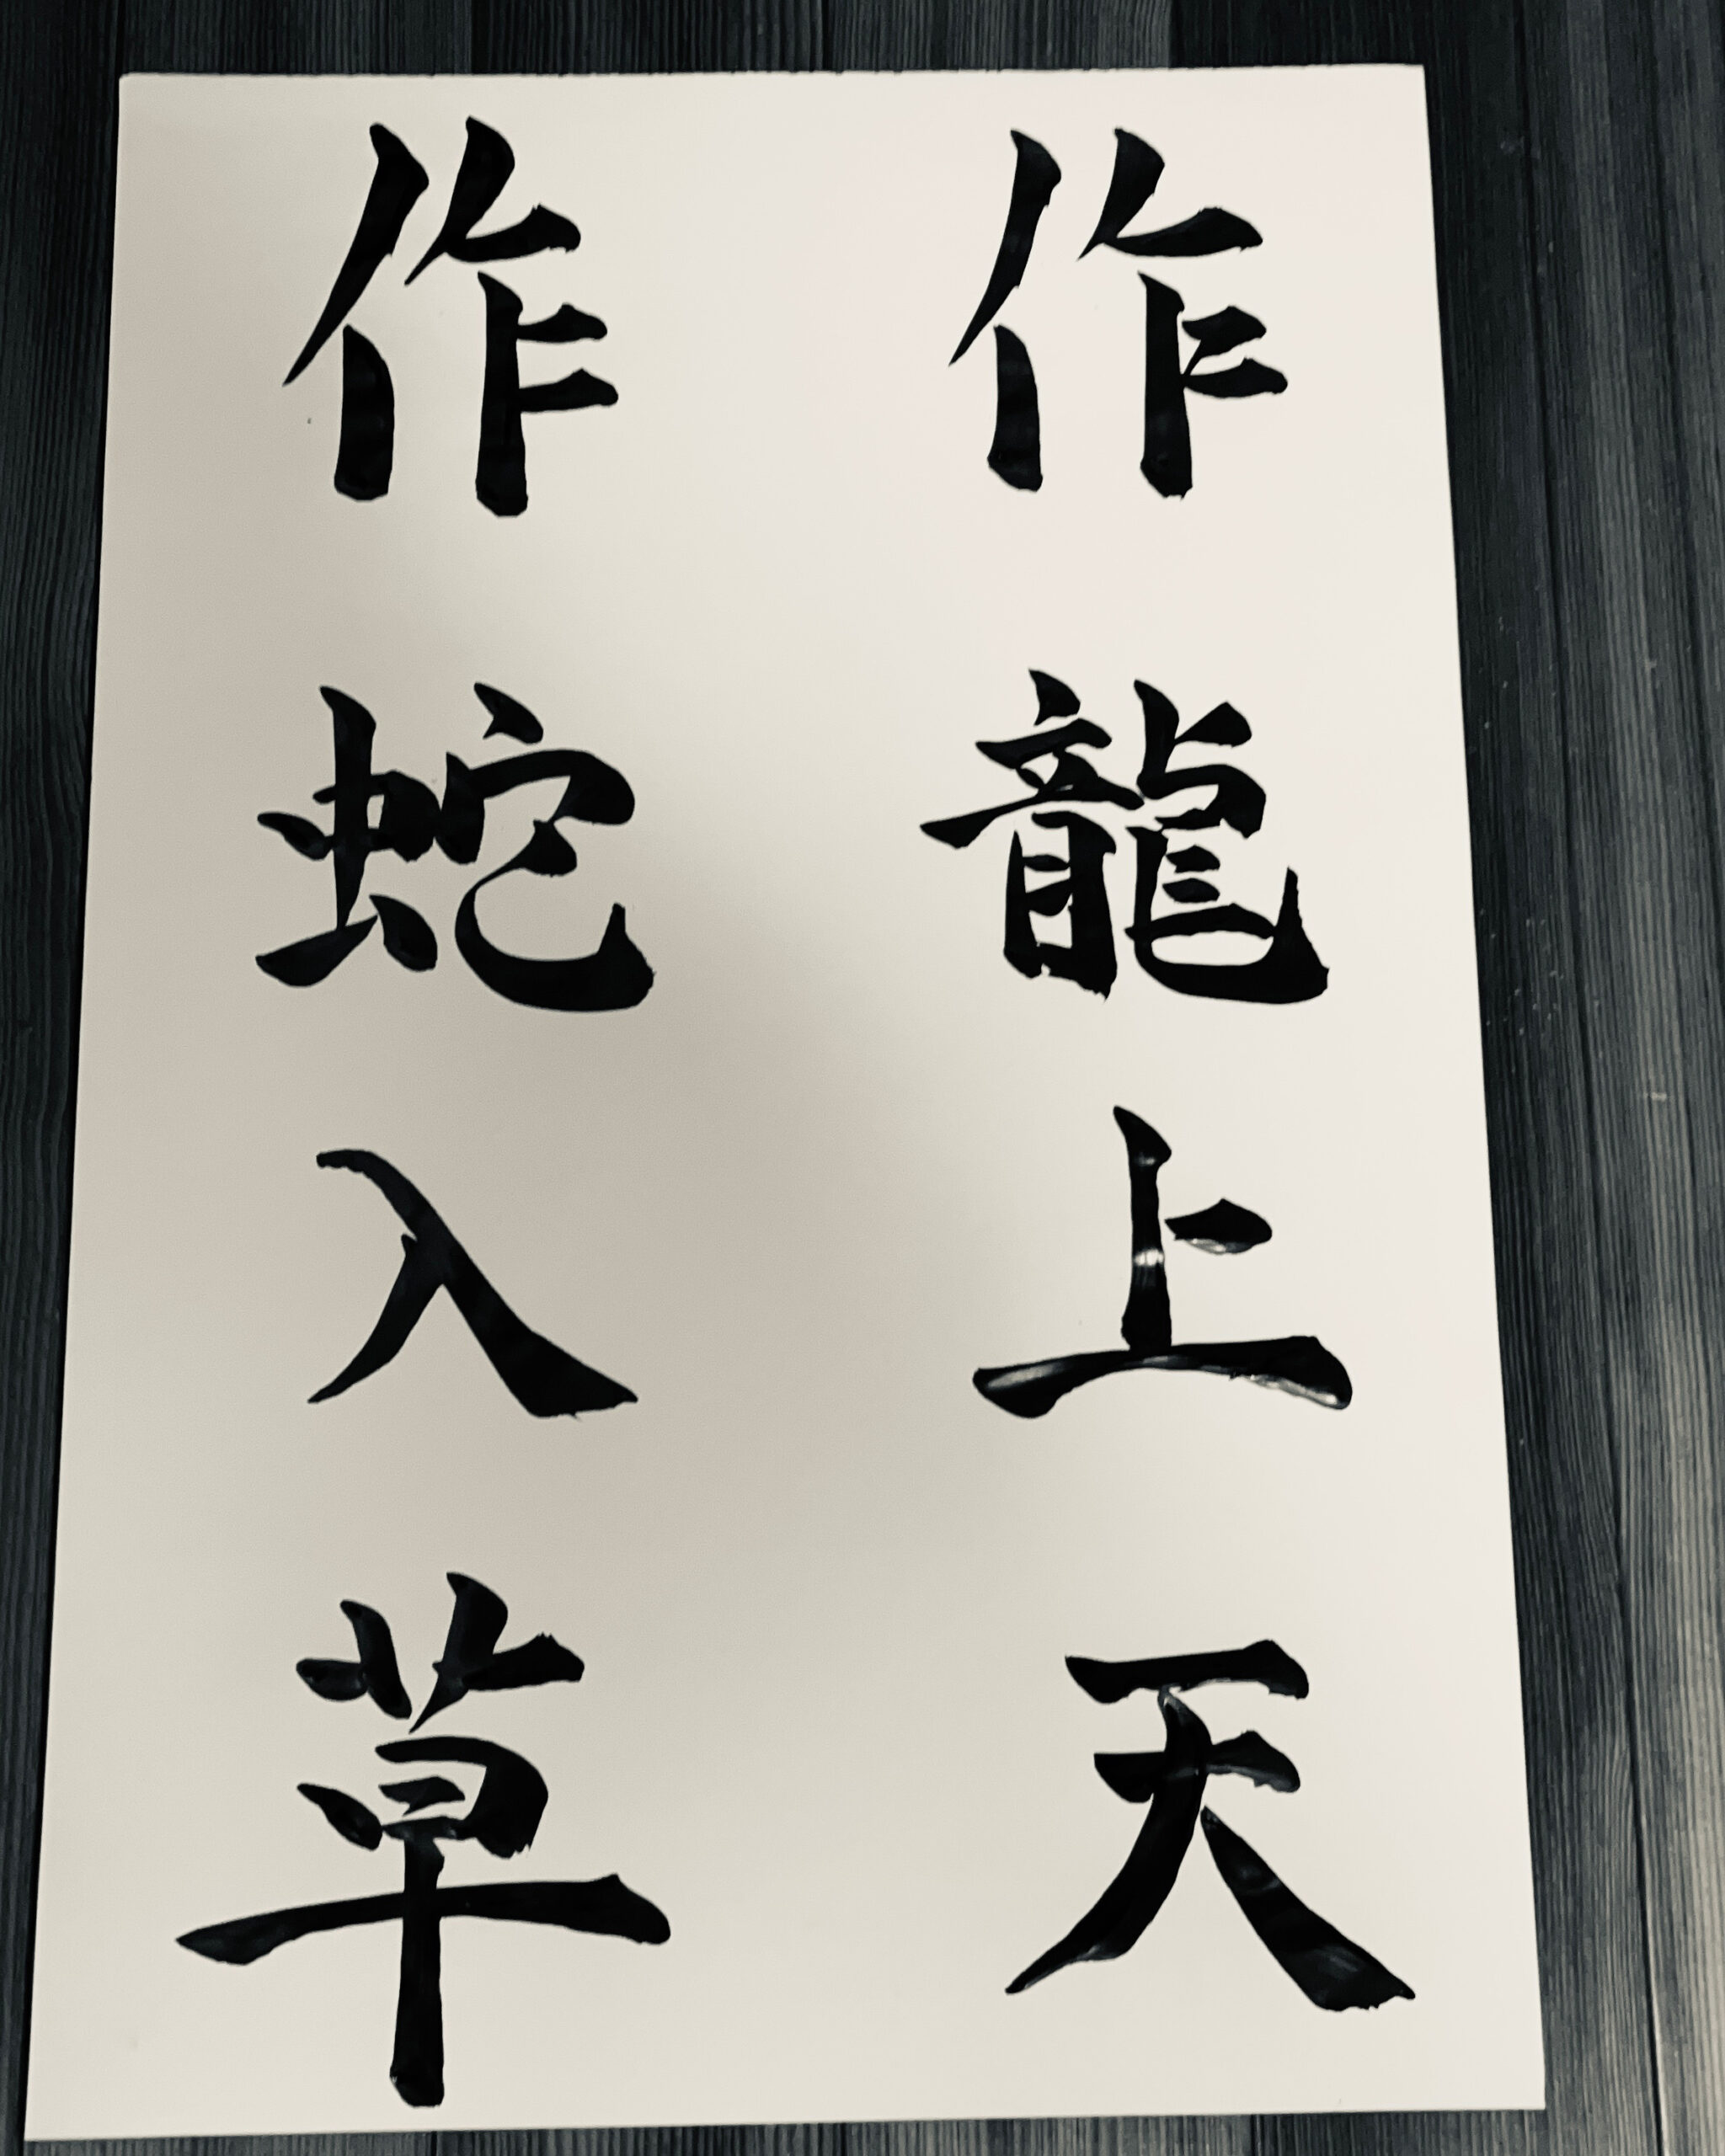 作龍上天
作蛇入草